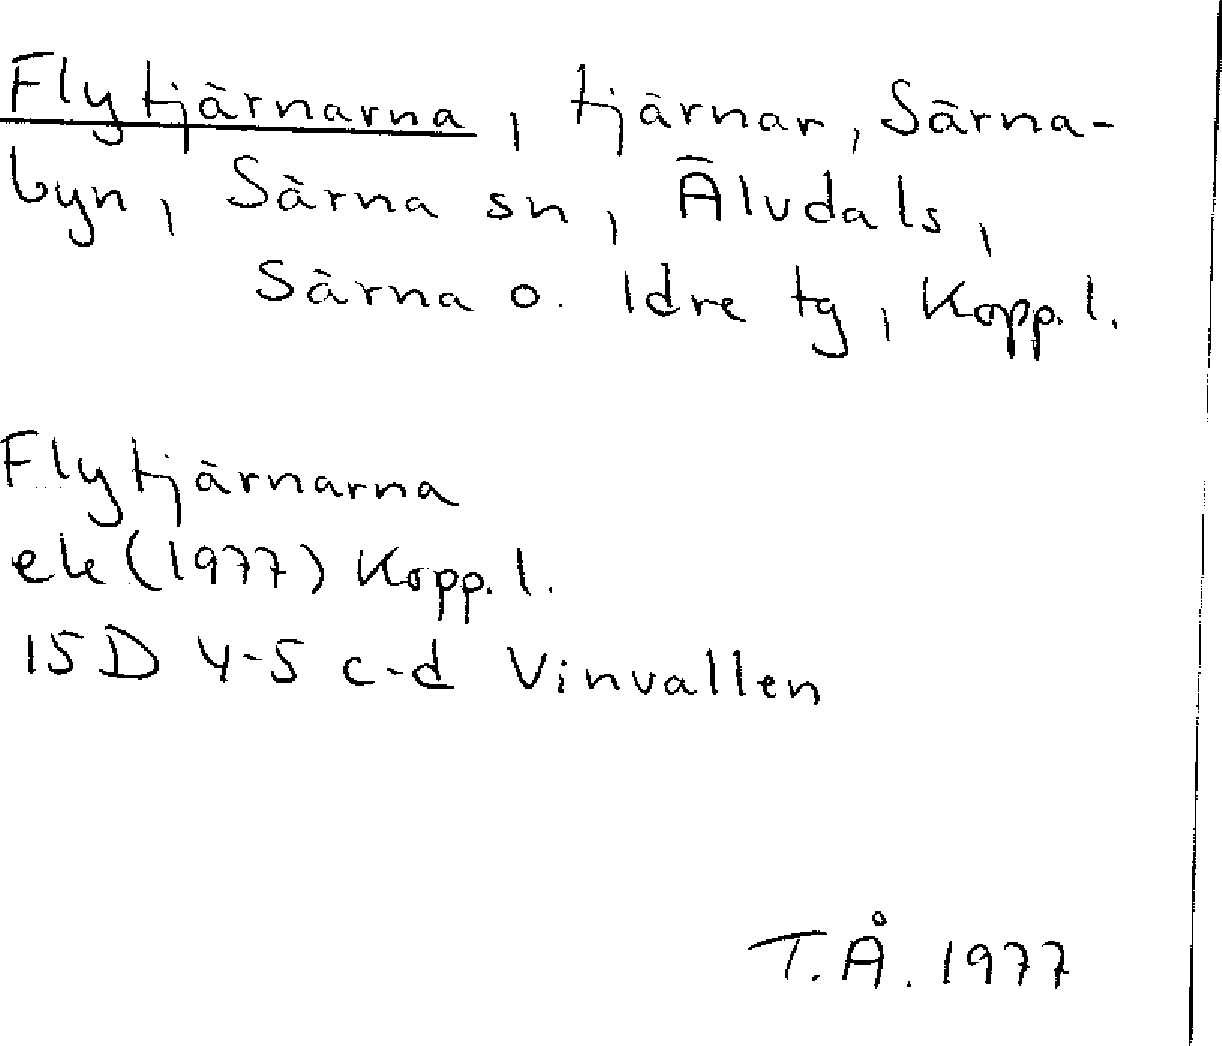 Flytjärnarna, tjärnar, Särna-
byn, Särna sn, Älvdals,
Särna o. Idre tg, Kopp. l.
Flytjärnarna
ek (1977) Kopp. l.
15D 4-5 c-d Vinvallen
T.Å. 1977